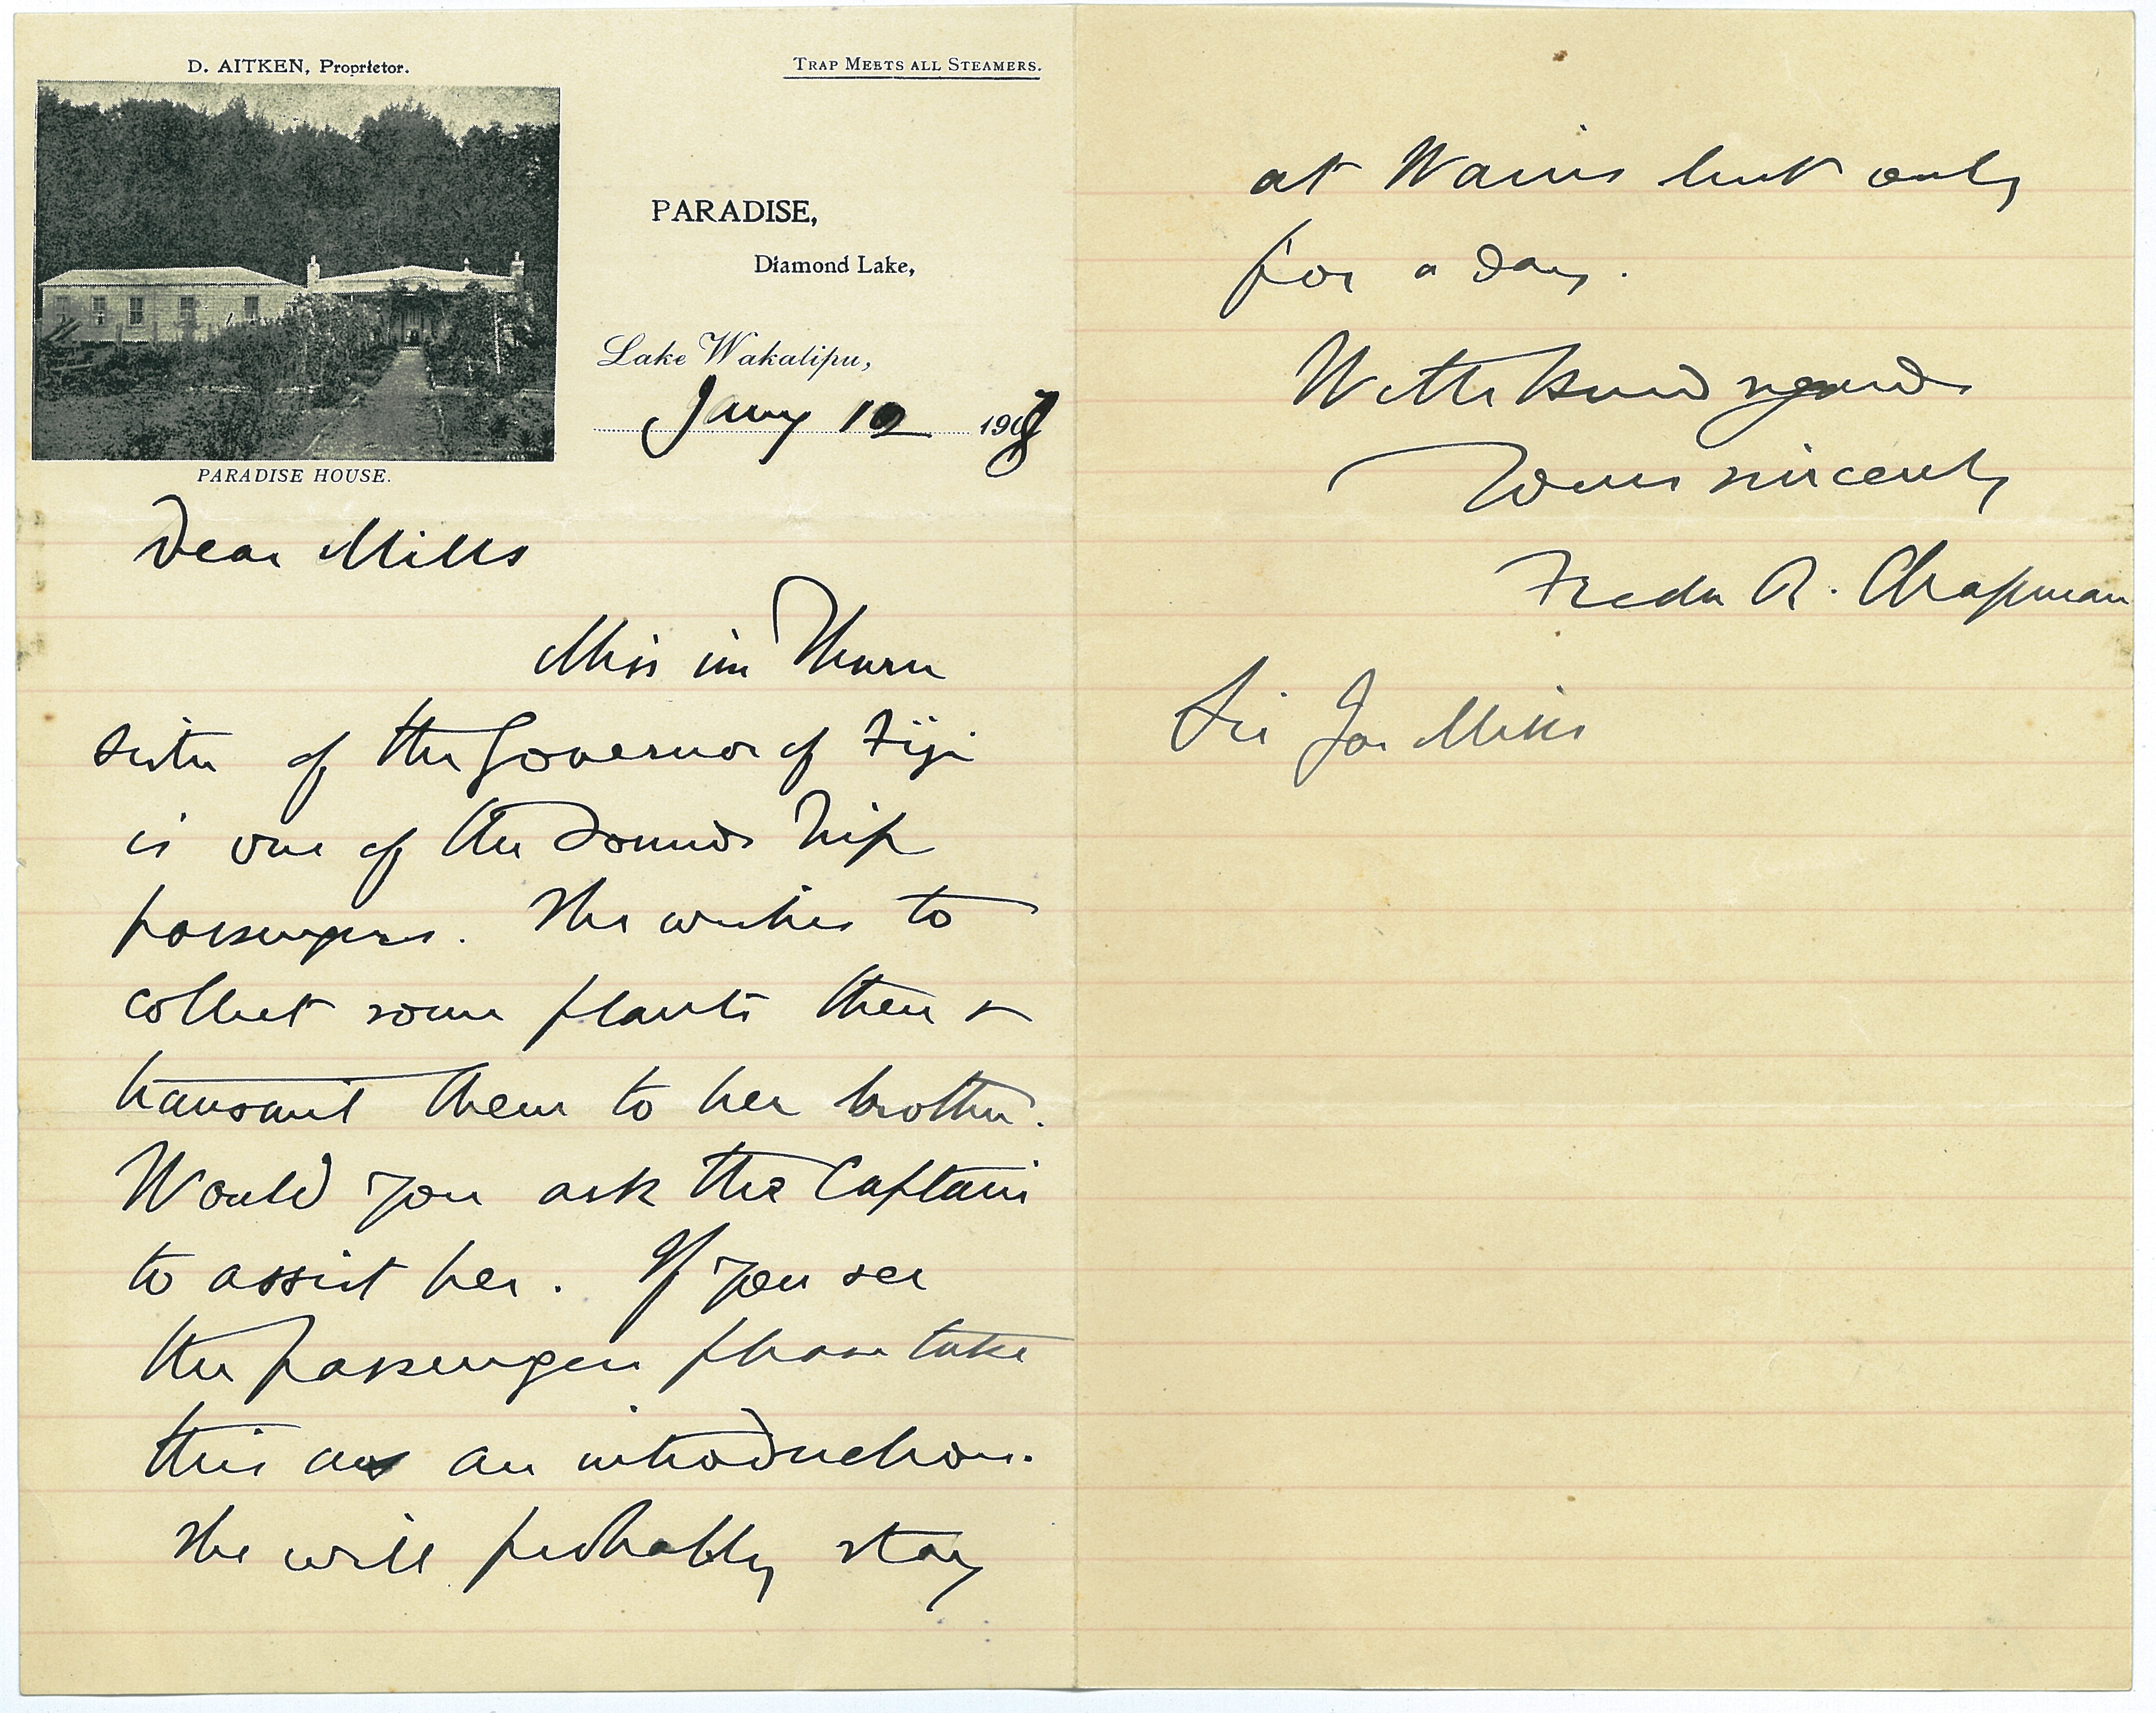 D. AITKEN, Proprietor.
TRAP MEETS ALL STEAMERS.
PARADISE,
Diamond Lake,
Lake Wakatipu,
Jany 10 1908
PARADISE HOUSE.
Dear Mills
Miss im Thurn
sister of the Governor of Fiji
is one of the Sounds trip
passengers. She wishes to
collect some plants there &
transmit them to her brother.
Would you ask the Captain
to assist her. If you see
the passengers please take
this as an introduction.
She will probably stay
at Wains but only
for a day.
With kind regards
Yours sincerely
Fredk R. Chapman
Sir Jas Mills